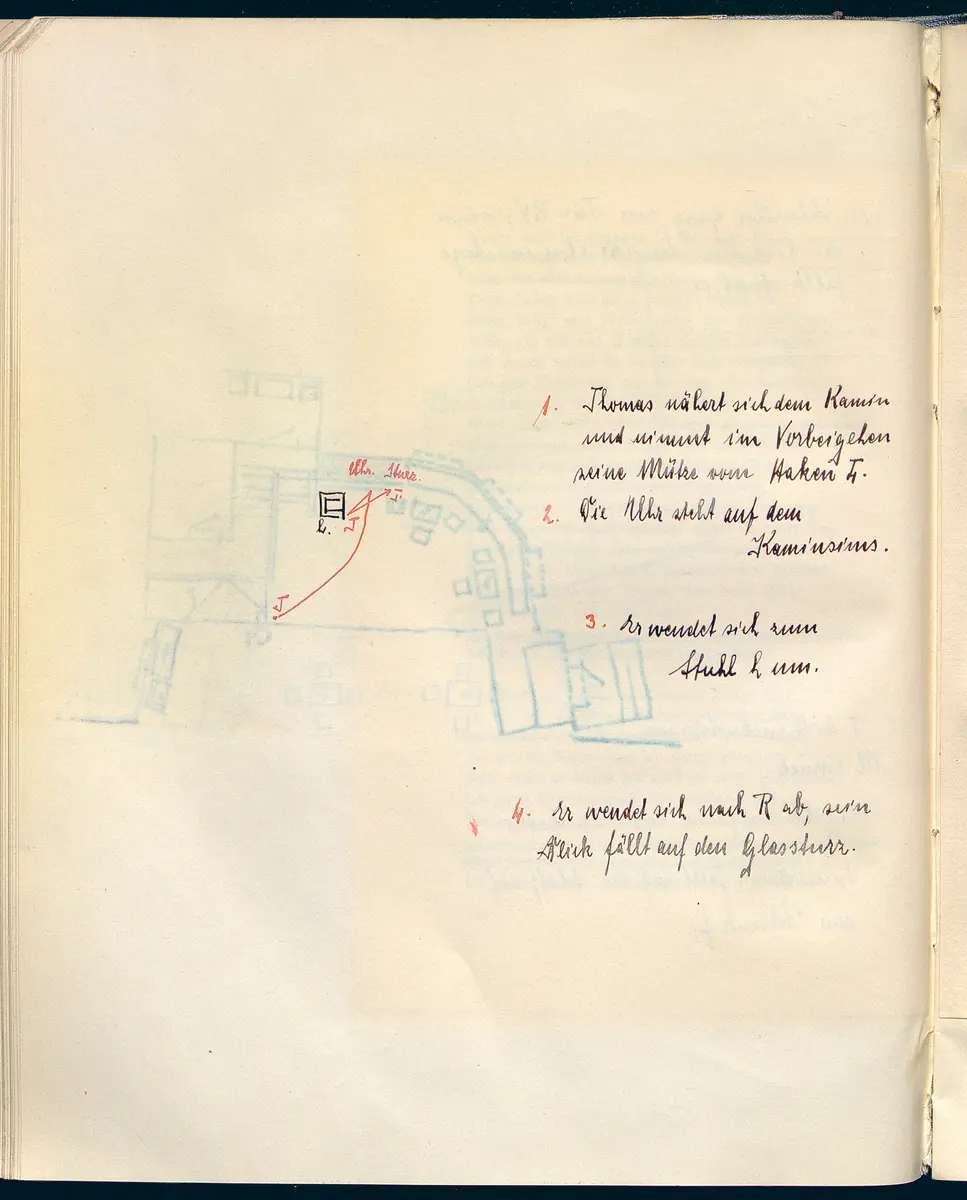 1. Thomas nähert sich dem Kamin
und nimmt im Vorbeigehen
seine Mütze vom Haken I.
2. Die Uhr steht auf dem
Kaminsims.
Uhr. Sturz.
T
T
L.
T
3. Er wendet sich zum
Stuhl L um.
4. Er wendet sich nach R ab, sein
Blick fällt auf den Glassturz.